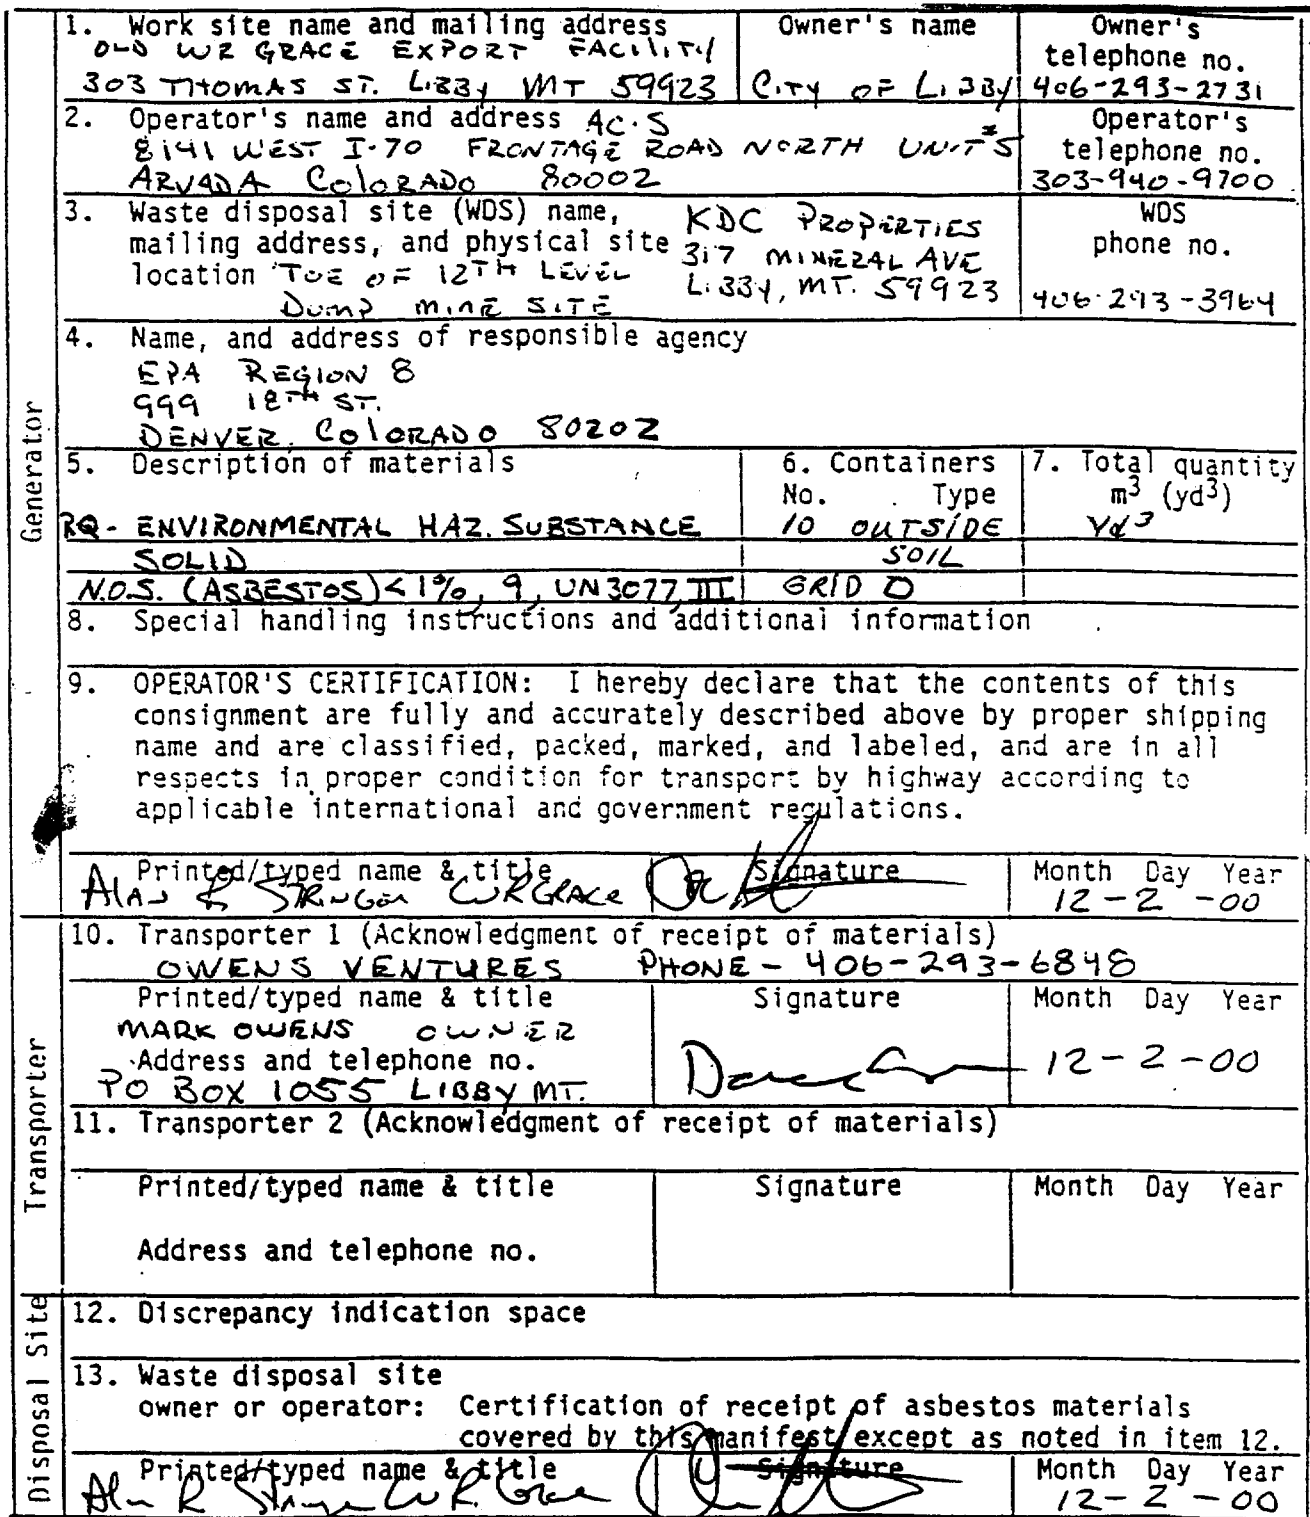 1. Work site name and mailing address
OLD WR GRACE EXPORT FACILITY
303 THOMAS ST. LIBBY MT 59923
Owner's name
CITY OF LIBBY
Owner's telephone no.
406-293-2731
2. Operator's name and address AC.S
8141 WEST I-70 FRONTAGE ROAD NORTH UNIT #5
ARVADA COLORADO 80002
Operator's telephone no.
303-940-9700
3. Waste disposal site (WDS) name,
mailing address, and physical site
location TOE OF 12TH LEVEL
DUMP MINE SITE
KDC PROPERTIES
317 MINERAL AVE
LIBBY, MT. 59923
WDS
phone no.
406-293-3964
4. Name, and address of responsible agency
EPA REGION 8
999 18TH ST.
DENVER, COLORADO 80202
Generator
5. Description of materials
RQ- ENVIRONMENTAL HAZ. SUBSTANCE
SOLID
N.O.S. (ASBESTOS) <1%, 9, UN3077, III
6. Containers
No. Type
10 OUTSIDE
SOIL
GRID D
7. Total quantity
m3 (yd3)
Yd3
8. Special handling instructions and additional information
9. OPERATOR'S CERTIFICATION: I hereby declare that the contents of this
consignment are fully and accurately described above by proper shipping
name and are classified, packed, marked, and labeled, and are in all
respects in proper condition for transport by highway according to
applicable international and government regulations.
Printed/typed name & title
Alan R Stringer WR Grace
Signature
Month Day Year
12-2-00
Transporter
10. Transporter 1 (Acknowledgment of receipt of materials)
OWENS VENTURES PHONE - 406-293-6848
Printed/typed name & title
MARK OWENS OWNER
Address and telephone no.
PO BOX 1055 LIBBY MT.
Signature
Month Day Year
12-2-00
11. Transporter 2 (Acknowledgment of receipt of materials)
Printed/typed name & title
Signature
Month Day Year
Address and telephone no.
Disposal Site
12. Discrepancy indication space
13. Waste disposal site
owner or operator: Certification of receipt of asbestos materials
covered by this manifest except as noted in item 12.
Printed/typed name & title
Alan R Stringer W R Grace
Signature
Month Day Year
12-2-00